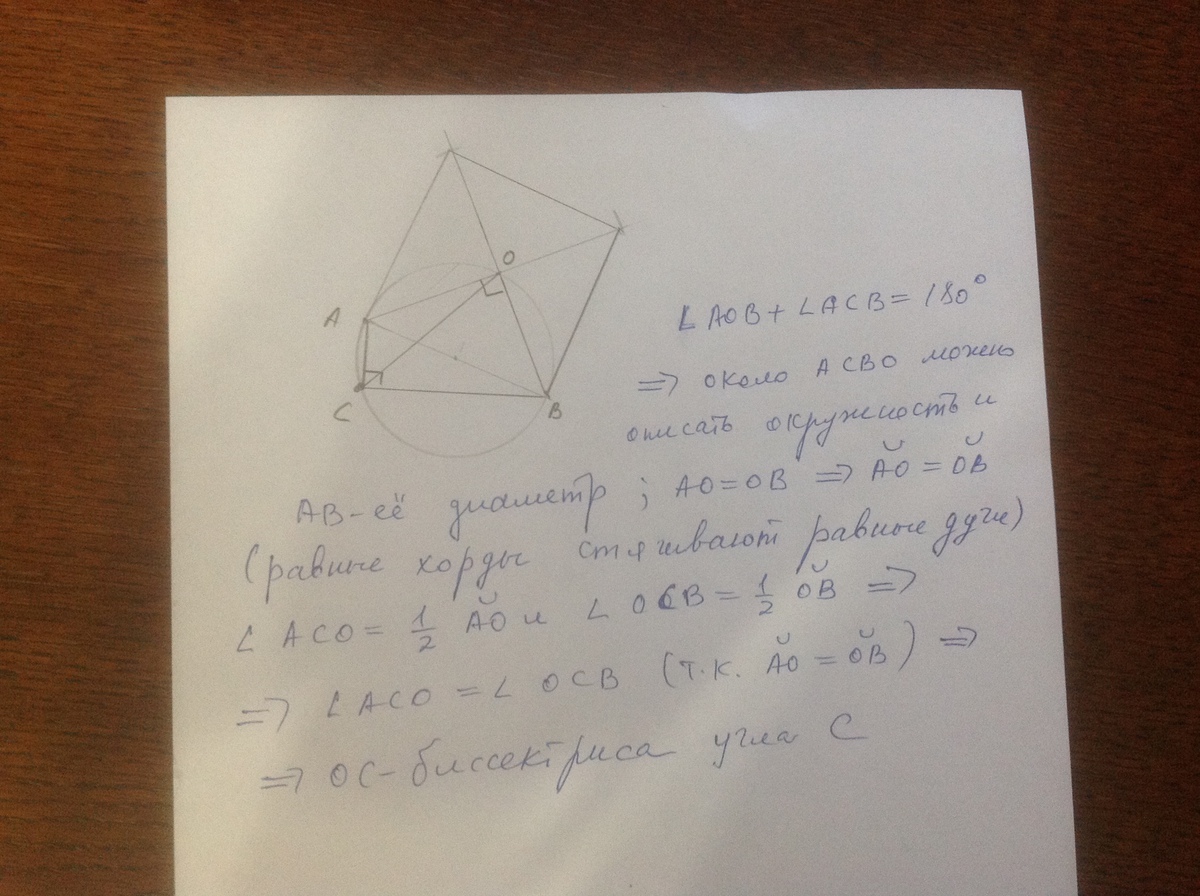 O
A
C
B
∠AOB + ∠ACB = 180°
=> около ACBO можно
описать окружность и
AB - её диаметр ; AO = OB => A͝O = O͝B
(равные хорды стягивают равные дуги)
∠ ACO = 1/2 A͝O и ∠ OCB = 1/2 O͝B =>
=> ∠ACO = ∠ OCB (т.к. A͝O = O͝B) =>
=> OC - биссектриса угла C